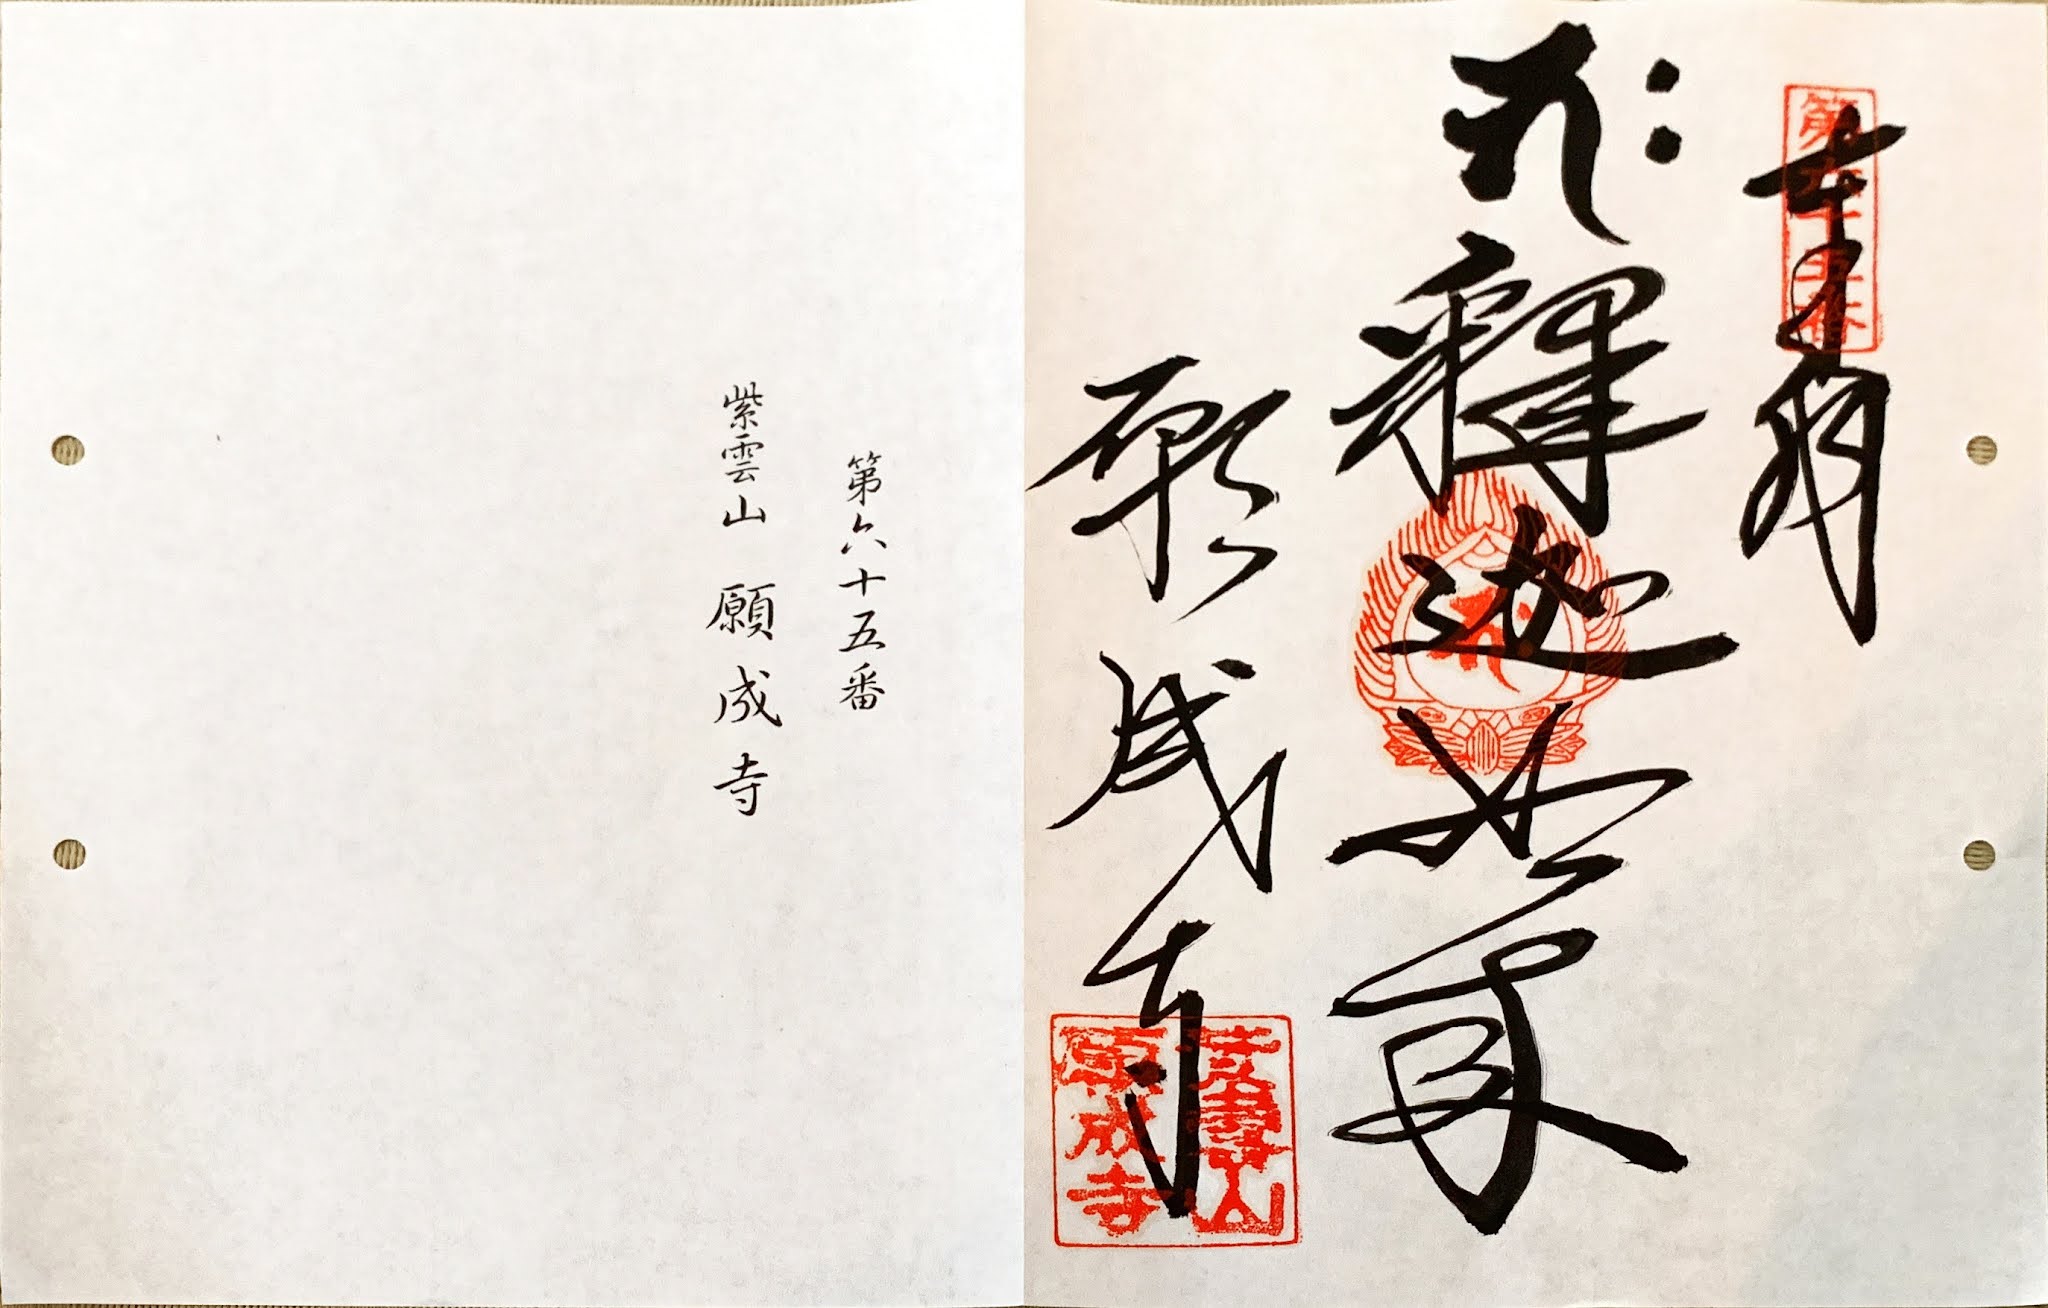 奉拝
第六十五番
釋迦如来
願成寺
紫雲山
願成寺
第六十五番
紫雲山 願成寺